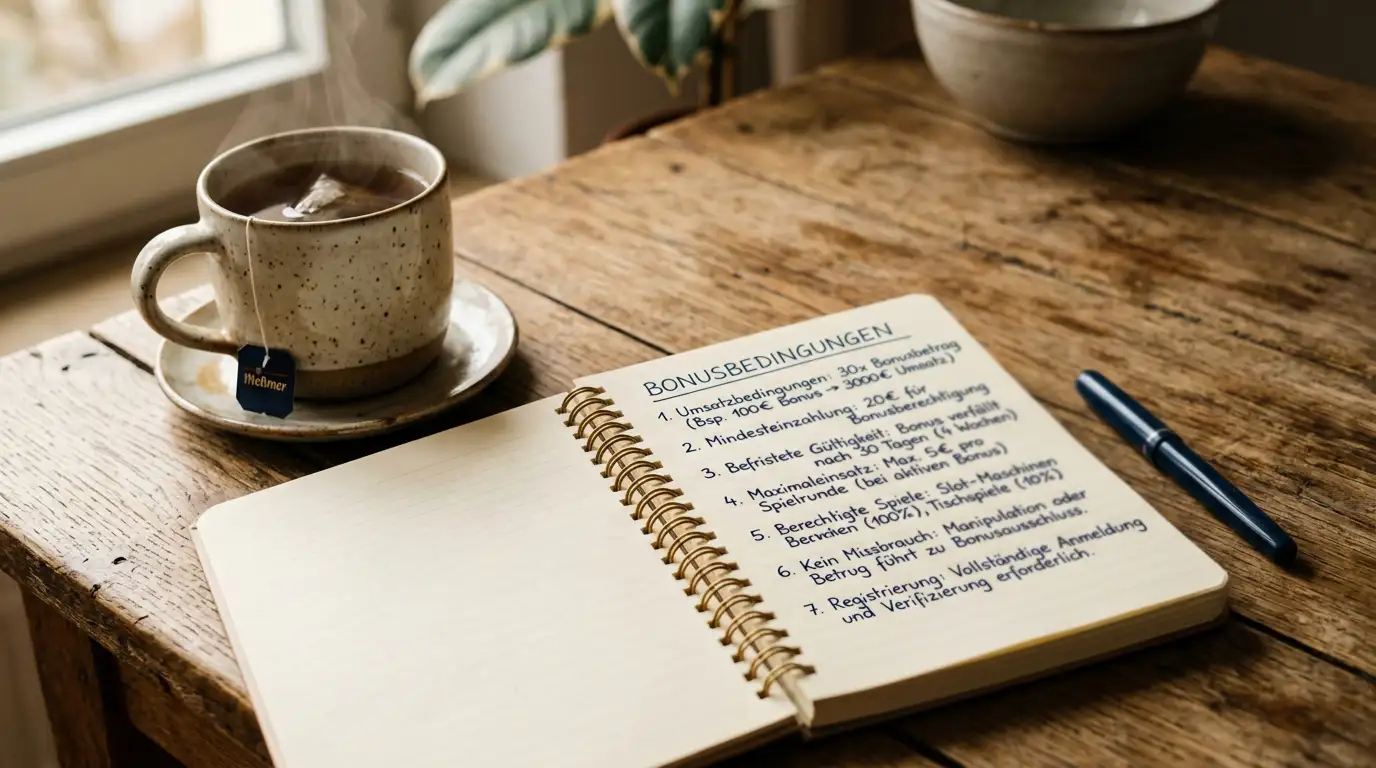 Meßmer
BONUSBEDINGUNGEN
1. Umsatzbedingungen: 30x Bonusbetrag
(Bsp. 100€ Bonus → 3000€ Umsatz)
2. Mindesteinzahlung: 20€ für
Bonusberechtigung
3. Befristete Gültigkeit: Bonus verfällt
nach 30 Tagen (4 Wochen)
4. Maximaleinsatz: Max. 5€ pro
Spielrunde (bei aktiven Bonus)
5. Berechtigte Spiele: Slot-Maschinen
(100%), Tischspiele (10%)
6. Kein Missbrauch: Manipulation oder
Betrug führt zu Bonusausschluss.
7. Registrierung: Vollständige Anmeldung
und Verifizierung erforderlich.